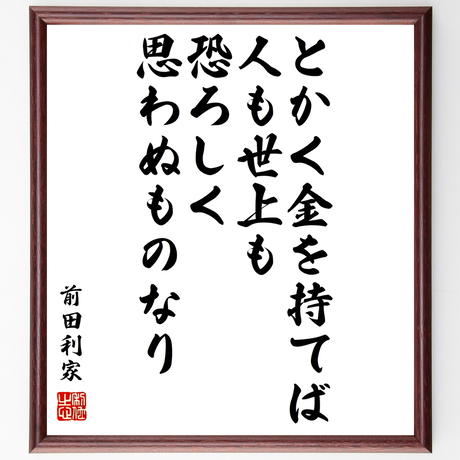 とかく金を持てば
人も世上も
恐ろしく
思わぬものなり
前田利家